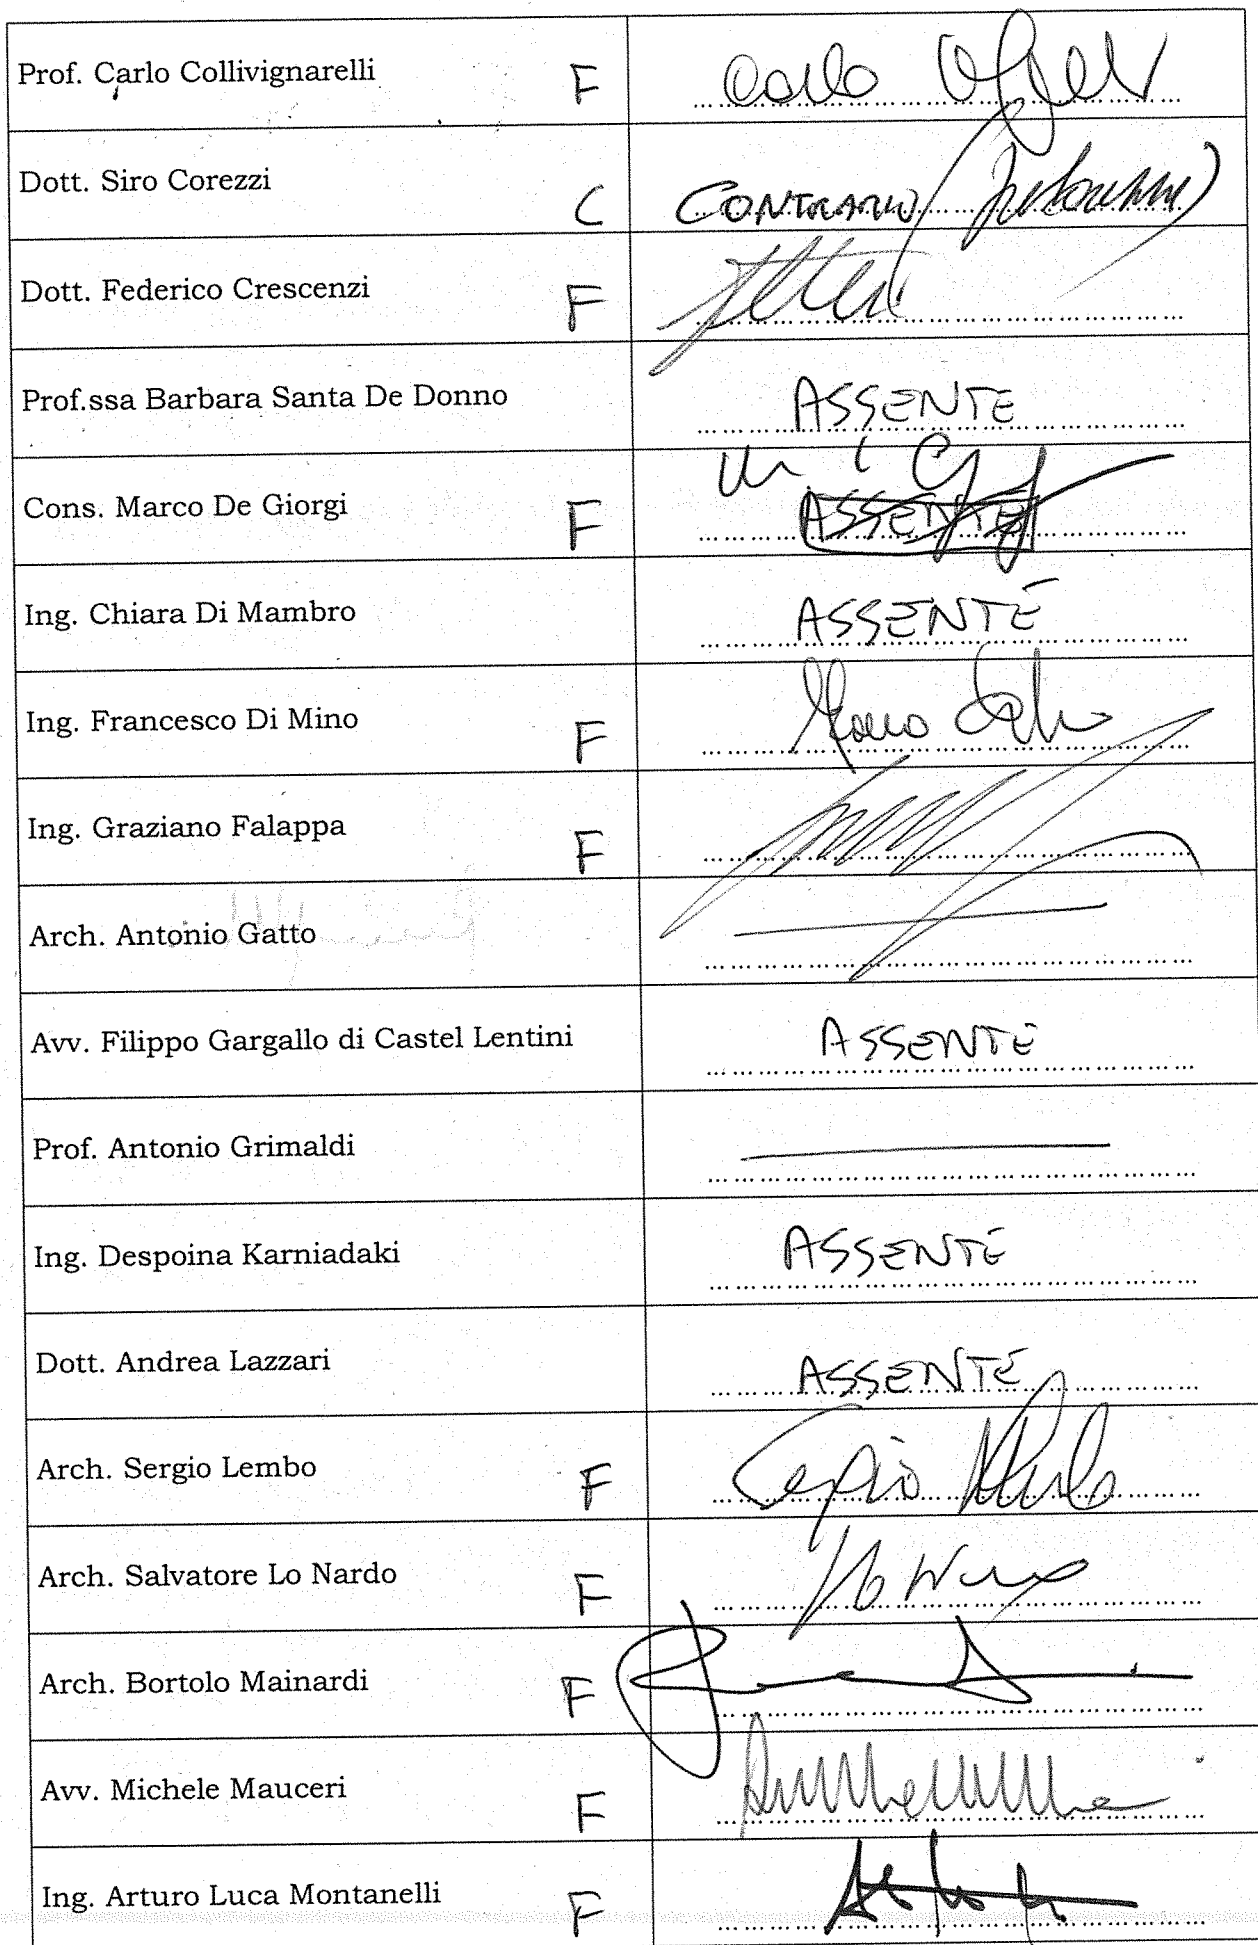 Prof. Carlo Collivignarelli F Carlo
Dott. Siro Corezzi C CONTRARIO
Dott. Federico Crescenzi F
Prof.ssa Barbara Santa De Donno ASSENTE
Cons. Marco De Giorgi F ASSENTE
Ing. Chiara Di Mambro ASSENTE
Ing. Francesco Di Mino F
Ing. Graziano Falappa F
Arch. Antonio Gatto
Avv. Filippo Gargallo di Castel Lentini ASSENTE
Prof. Antonio Grimaldi
Ing. Despoina Karniadaki ASSENTE
Dott. Andrea Lazzari ASSENTE
Arch. Sergio Lembo F Sergio
Arch. Salvatore Lo Nardo F
Arch. Bortolo Mainardi F
Avv. Michele Mauceri F
Ing. Arturo Luca Montanelli F